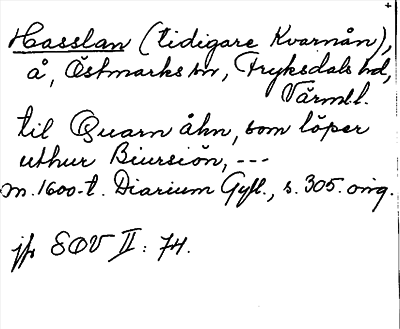 Hasslan (tidigare Kvarnån),
å, Östmarks sn, Fryksdals hd,
Värml.
til Quarn åhn, som löper
uthur Biursiön, ---
m. 1600-t. Diarium Gyll., s. 305. orig.
jfr SOV II: 74.